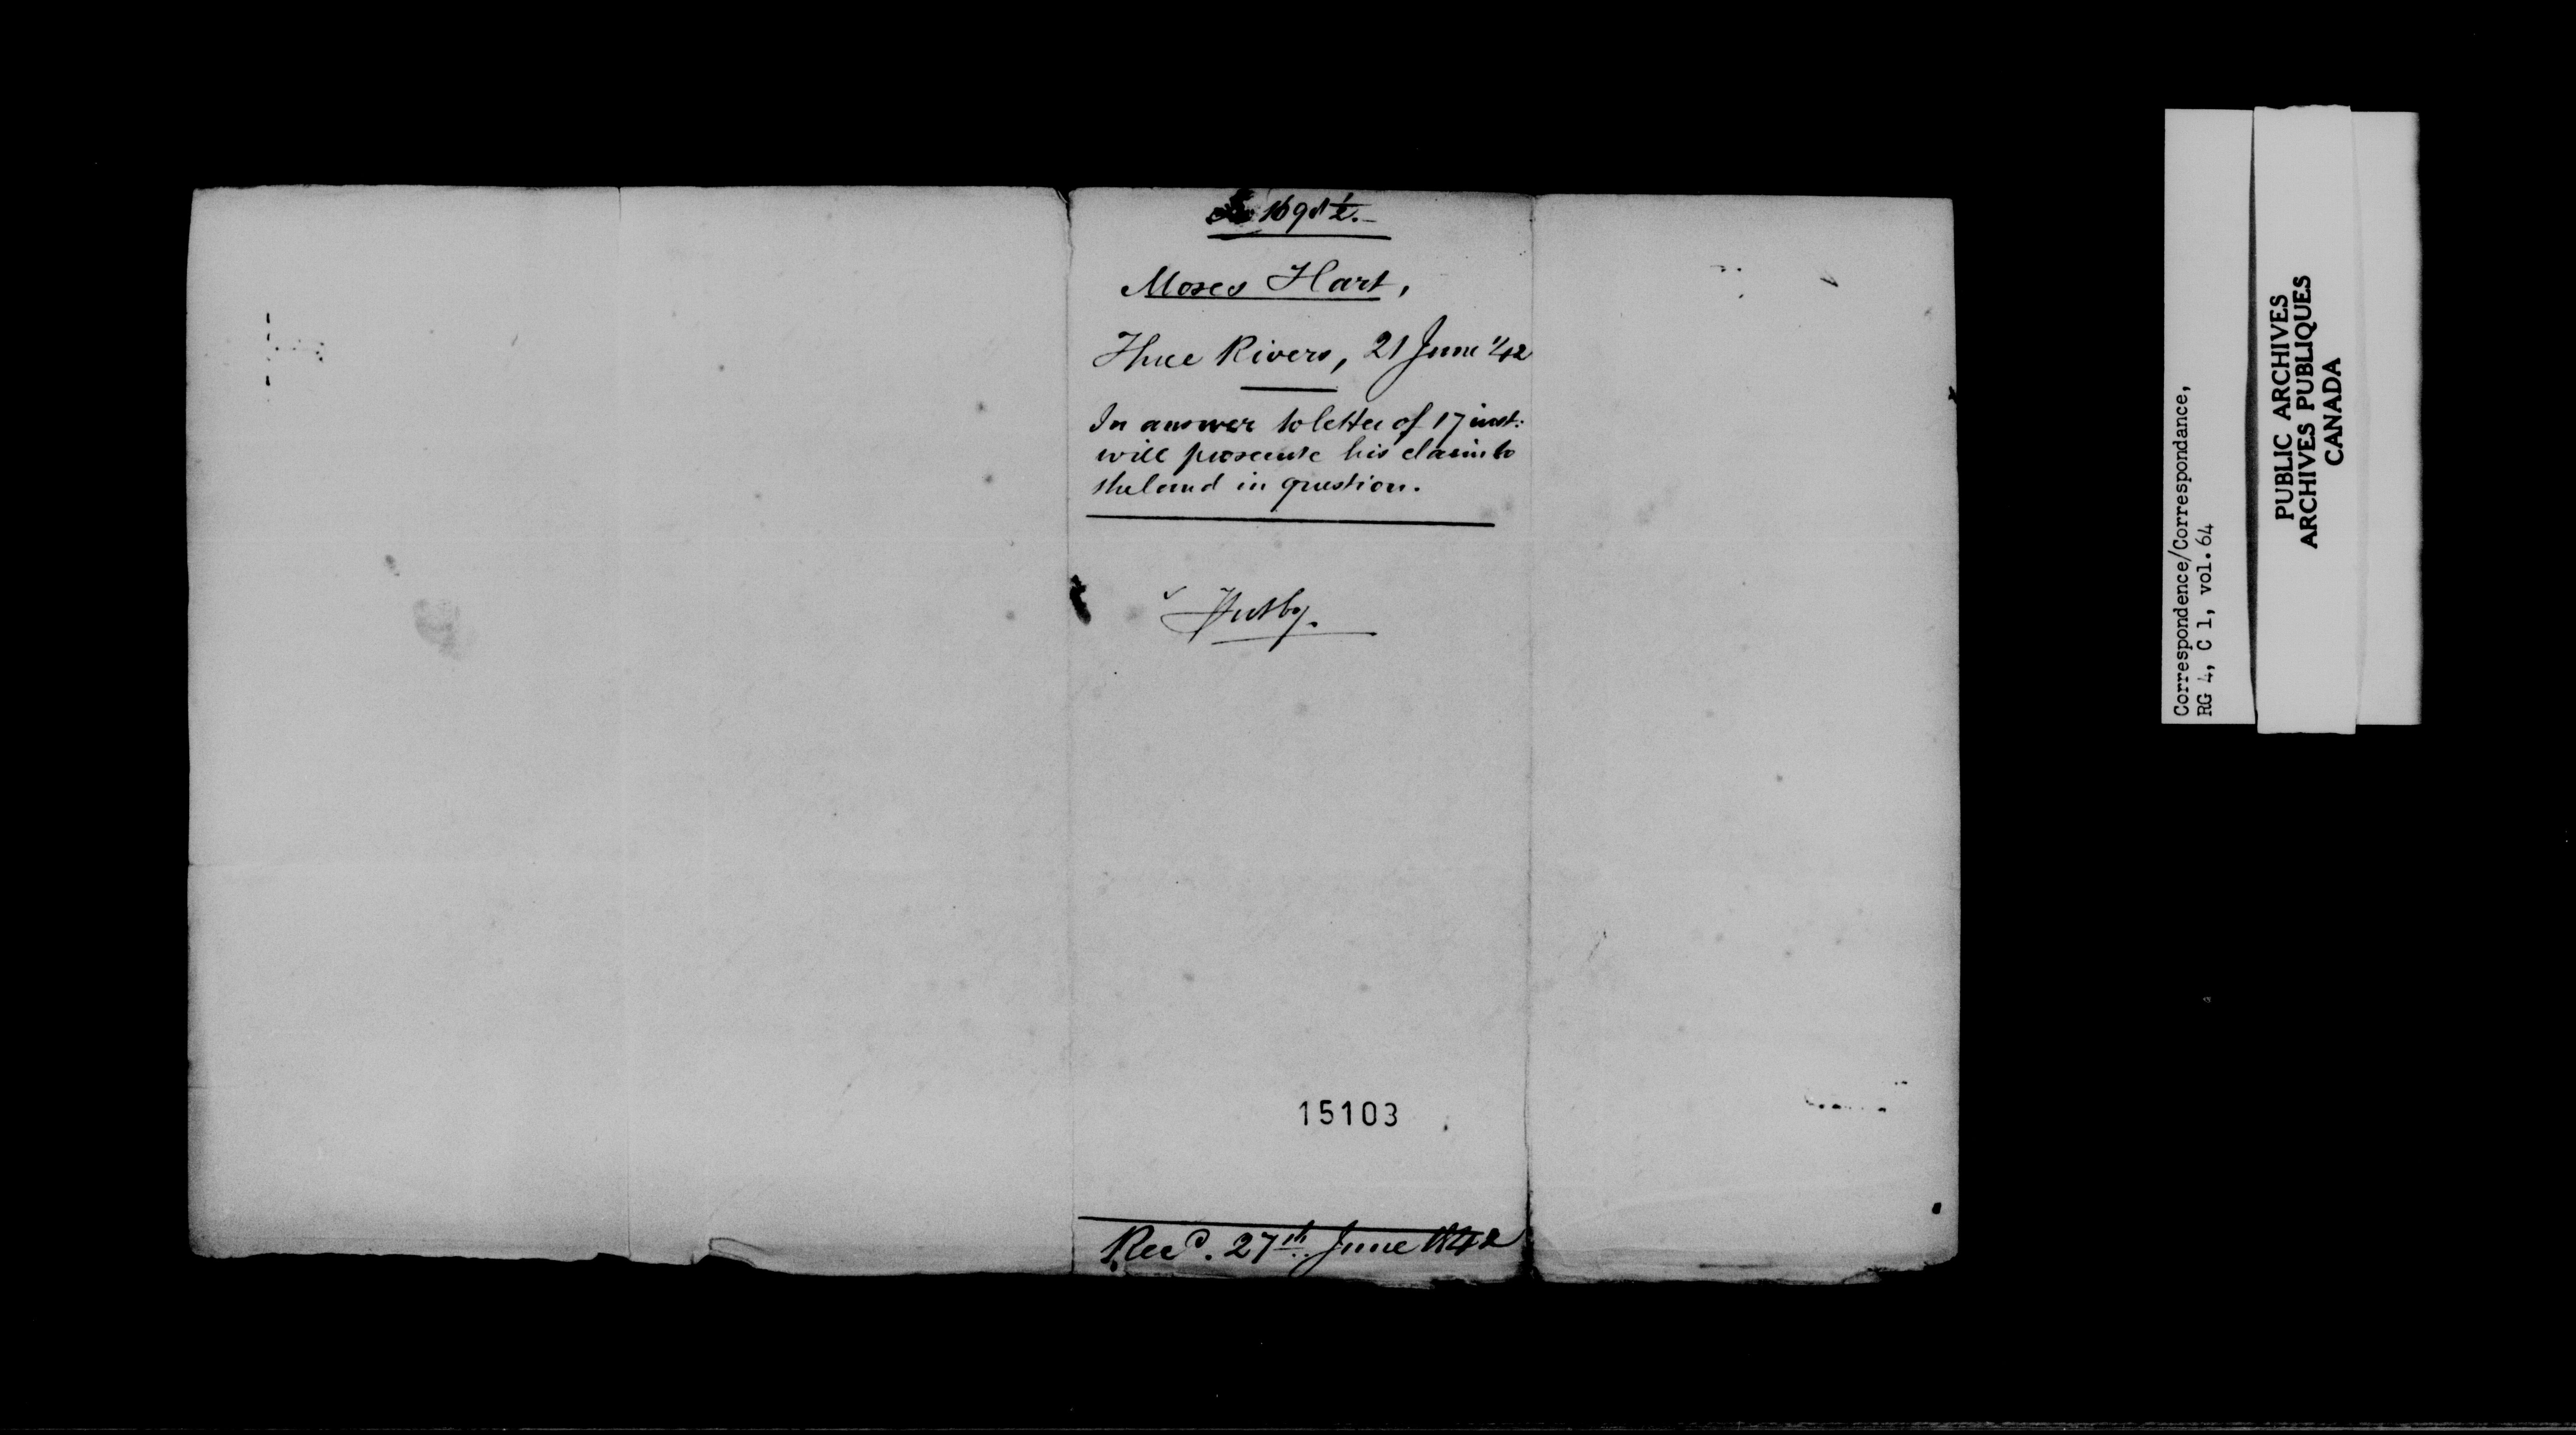 No 1698½.
Moses Hart,
Three Rivers, 21 June /42
In answer to letter of 17 inst:
will prosecute his claim to
the land in question.
15103
Recd. 27th June 1842
Correspondence/Correspondance,
RG 4, C 1, vol. 64
PUBLIC ARCHIVES
ARCHIVES PUBLIQUES
CANADA